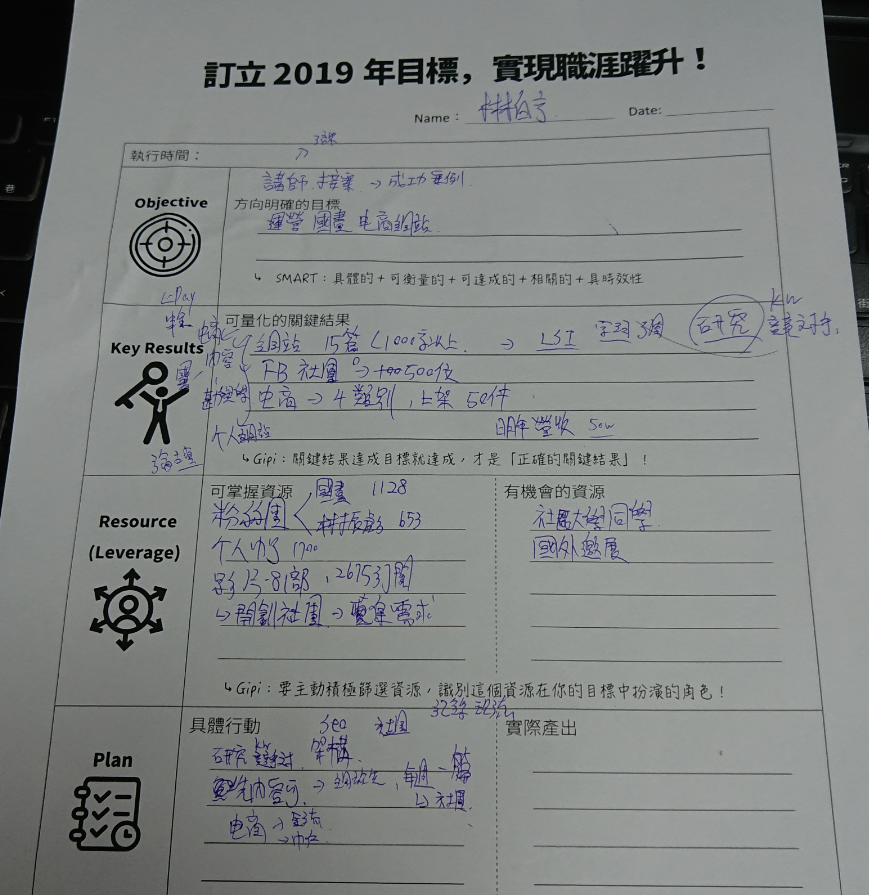 訂立 2019 年目標，實現職涯躍升！
Name： 林柏亨 Date:
執行時間：
Objective
講師 接案 → 成功案例
方向明確的目標
運營 國畫 电商網站
↳ SMART：具體的 + 可衡量的 + 可達成的 + 相關的 + 具時效性
可量化的關鍵結果
Key Results
網站 15篇 <1000字以上 → LSI 研究
內容
FB 社團 500位
电商 → 4類別，上架 50件
個人網站 明年營收 50w
↳ Gipi：關鍵結果達成目標就達成，才是「正確的關鍵結果」！
Resource
(Leverage)
可掌握資源 國畫 1128
粉絲團 653
個人 1700
影片 81部，26753訂閱
↳ 開創社團 → 需求
有機會的資源
社區大學同學
國外邀展
↳ Gipi：要主動積極篩選資源，識別這個資源在你的目標中扮演的角色！
Plan
具體行動 Seo 社團
研究 架構
先內容 → 每週一篇
↳ 社團
电商 → 金流
實際產出